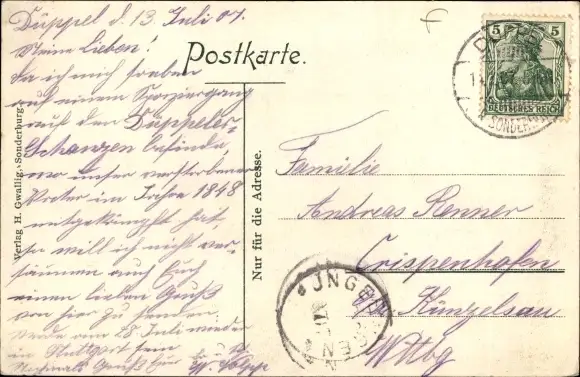 Düppel d. 13 Juli 07.
Meine Lieben!
Da ich mich soeben
auf einem Spaziergang
auf den Düppeler-
Schanzen befinde,
wo unser verstorbener
Vater im Jahre 1848
mitgekämpft hat,
so will ich nicht ver-
säumen auch Euch
einen lieben Gruß
von hier zu senden.
Werde am 28 Juli wieder
in Stuttgart sein
Nochmals Gruß Euer
Postkarte.
Verlag H. Gwallig, Sonderburg.
Nur für die Adresse.
5 5
DEUTSCHES REICH
SONDER
Familie
Andreas Renner
Crispenhofen
Künzelsau
Wttbg
JNGE